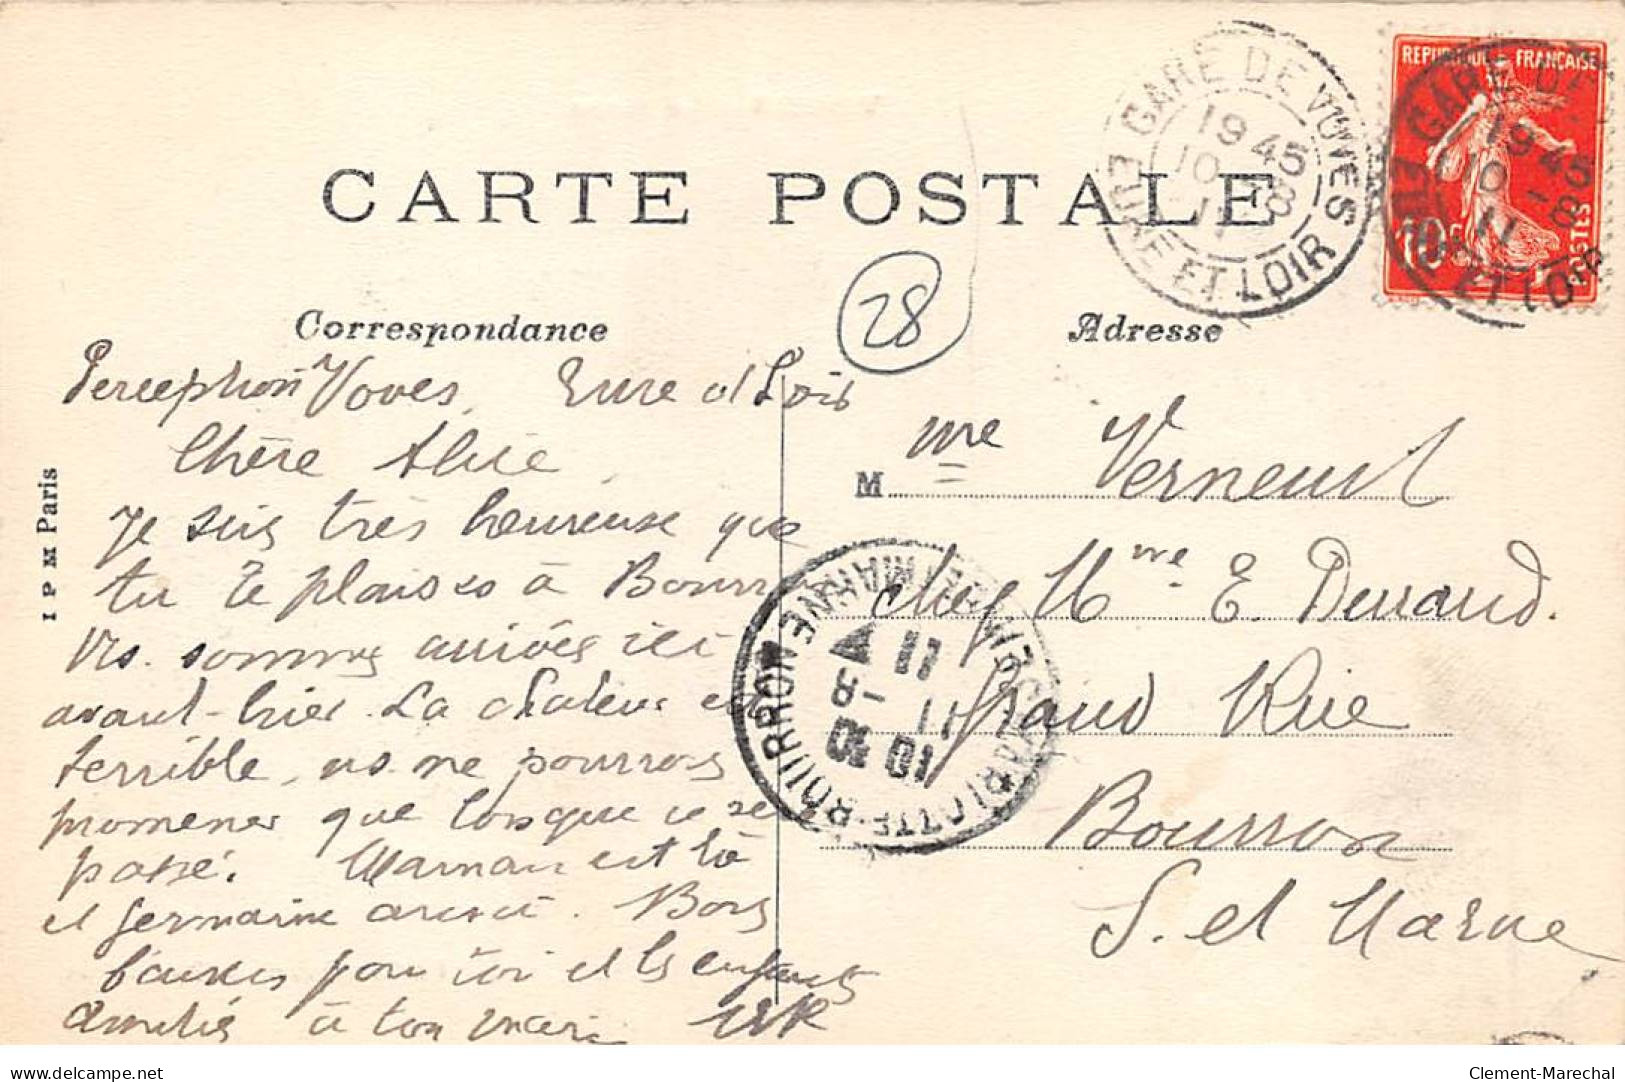 CARTE POSTALE
GARE DE VOVES
EURE ET LOIR
19 45
10 - 8
11
REPUBLIQUE FRANÇAISE
10 c
POSTES
GARE DE
19 45
10 - 8
11
EURE ET LOIR
28
Correspondance
Adresse
Perception Voves Eure et Loir
Chère Alice
Je suis très heureuse que
tu te plaises à Bourron
ns. sommes arrivés ici
avant-hier. La chaleur est
terrible, ns ne pourrons
promener que lorsque ce sera
passé. Maman est là
et Germaine aussi. Bons
baisers pour toi et les enfants
Amitiés à ton mari
I P M Paris
M me Verneuil
chez Mme E. Durand.
Grand Rue
Bourron
S. et Marne
MARLOTTE-BOURRON
SEINE ET MARNE
11
10
11 - 8
Delcampe.net
Clement-Marechal